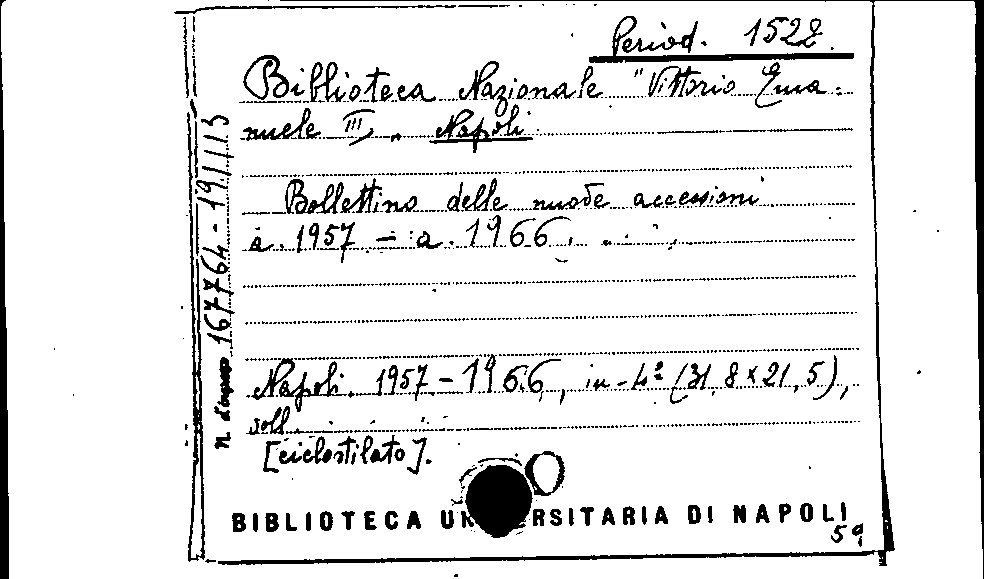 Period. 1522.
Biblioteca Nazionale "Vittorio Ema-
nuele III„ Napoli
Bollettino delle nuove accessioni
a. 1957 - a. 1966.
Napoli. 1957 - 1966, in-4° (31,8 x 21,5),
voll.
[ciclostilato].
n. d'ingresso 167764 - 191113
BIBLIOTECA UN ERSITARIA DI NAPOLI
59